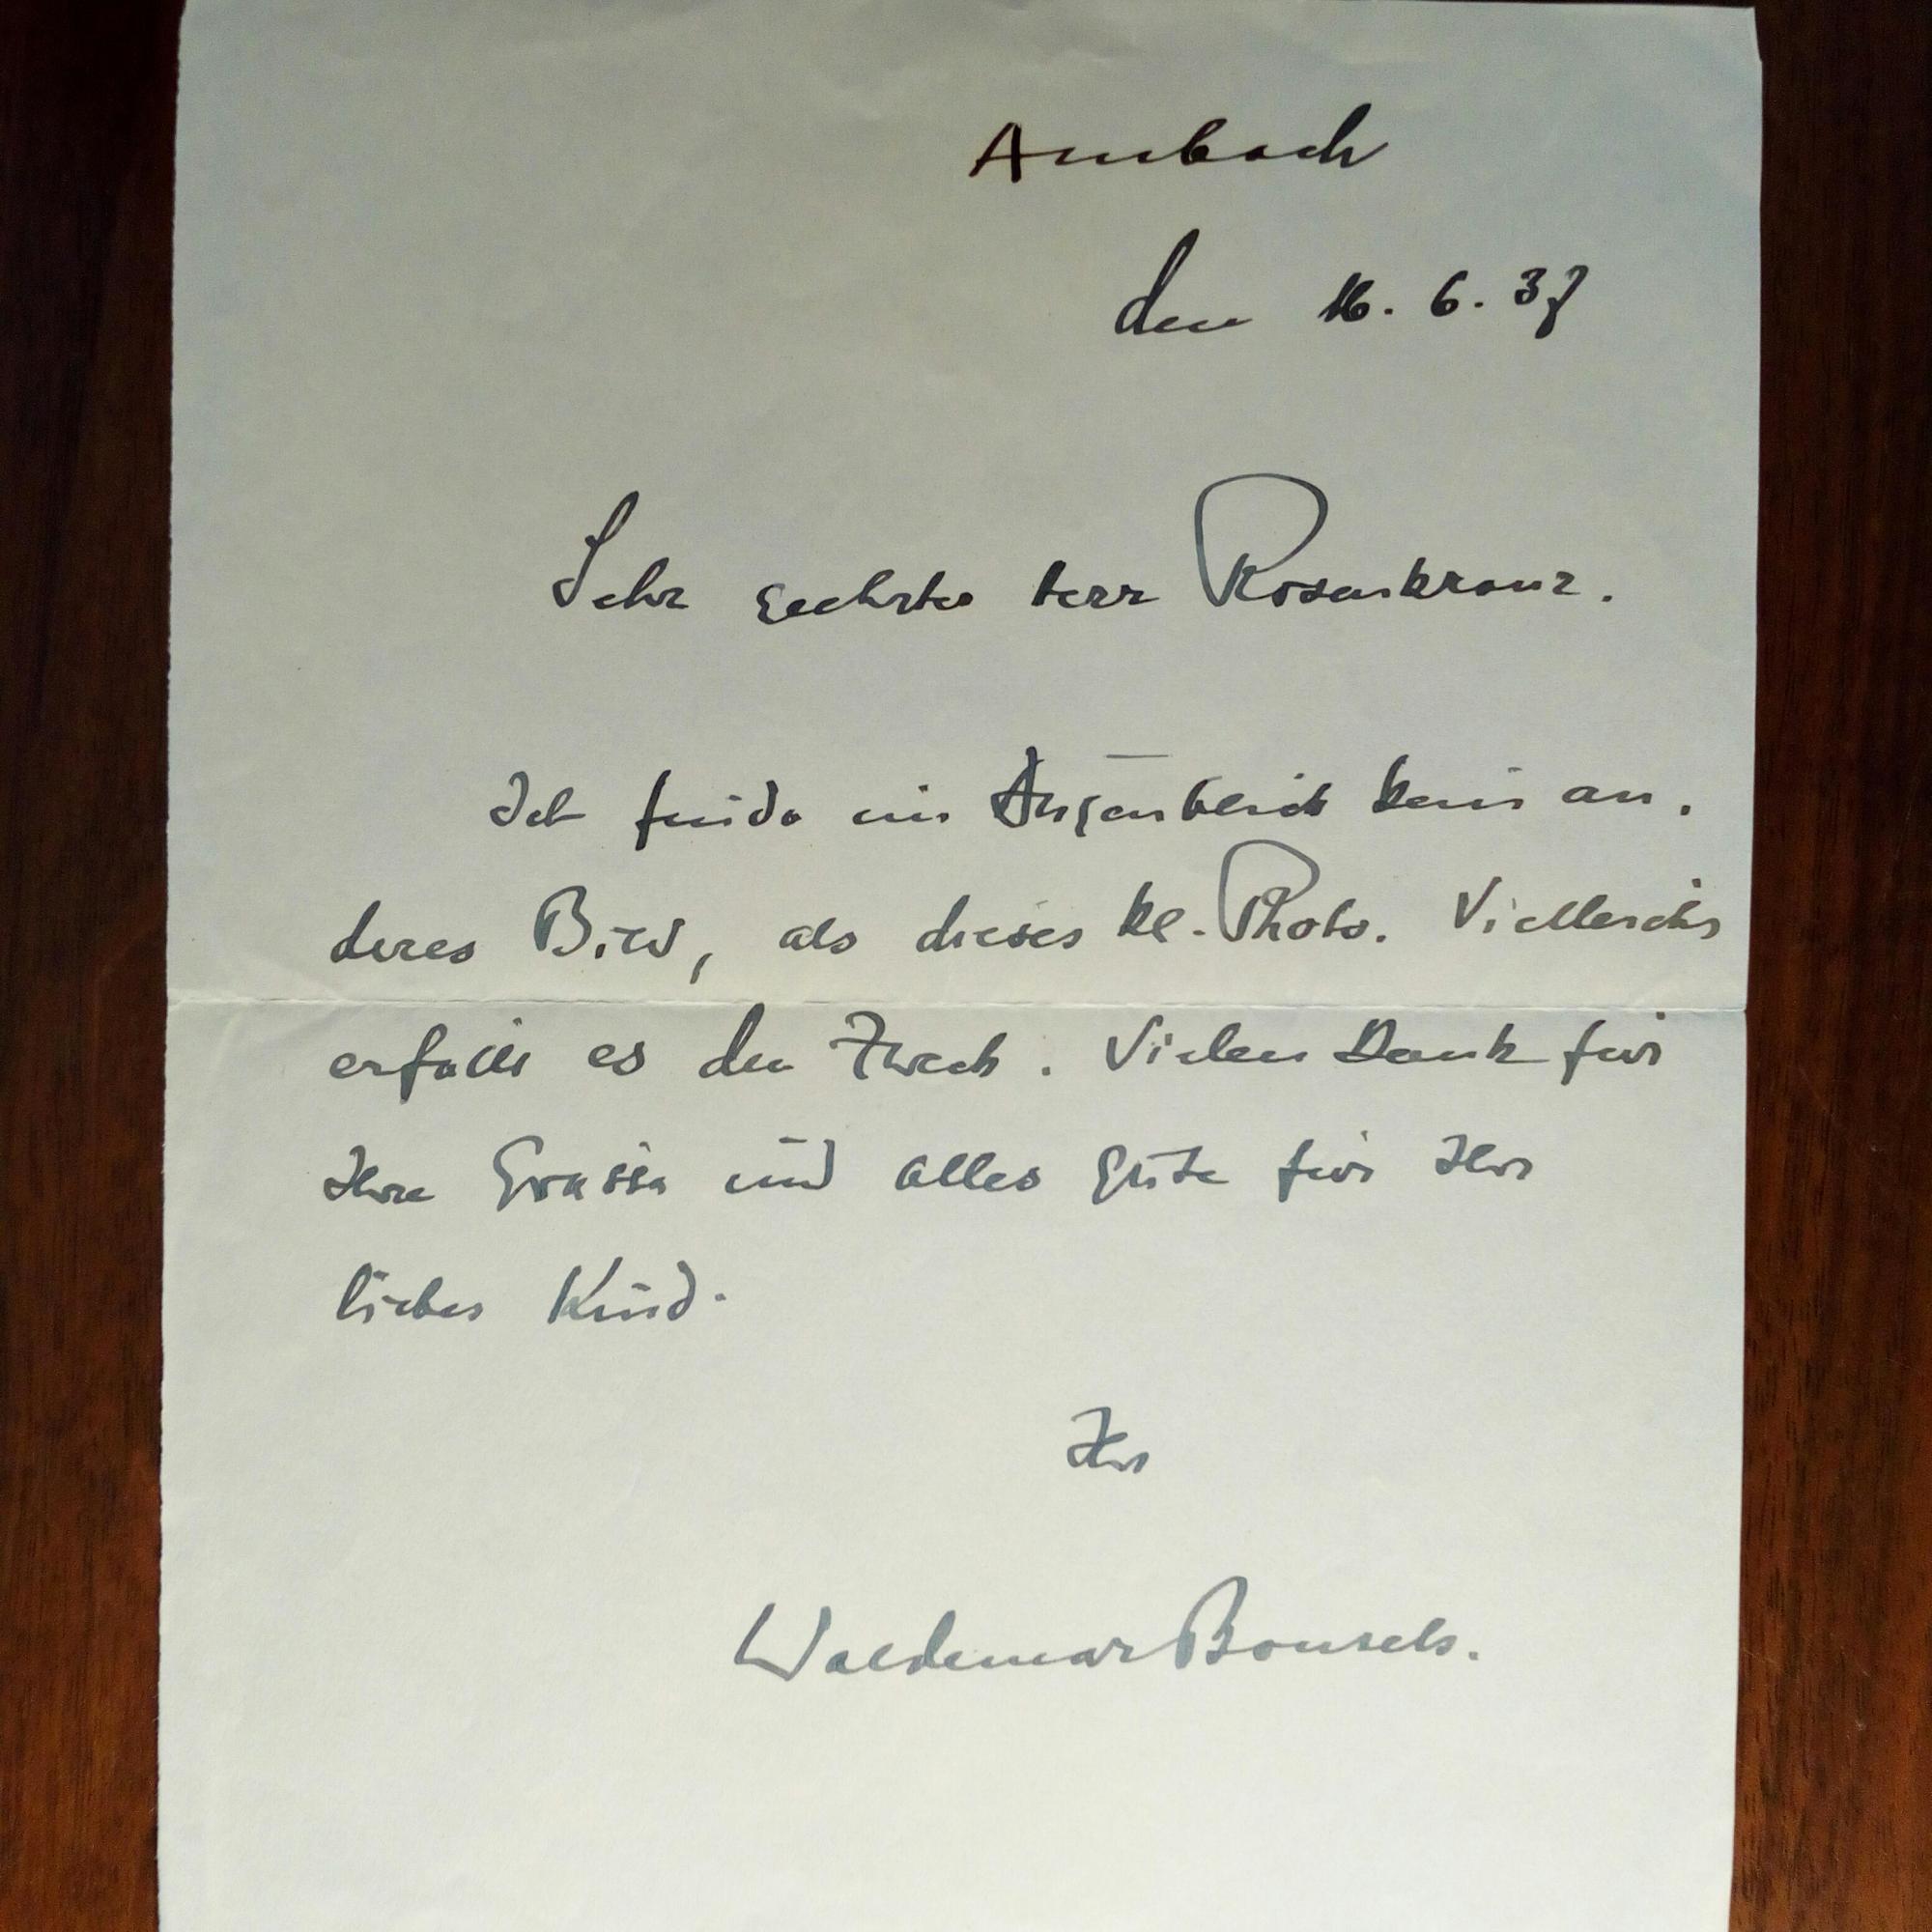 Ambach
den 16. 6. 37
Sehr geehrter Herr Rosenkranz.
Ich finde im Augenblick kein an-
deres Bild, als dieses kl. Photo. Vielleicht
erfüllt es den Zweck. Vielen Dank für
Ihre Grüsse und alles Gute für Ihr
liebes Kind.
Ihr
Waldemar Bonsels.